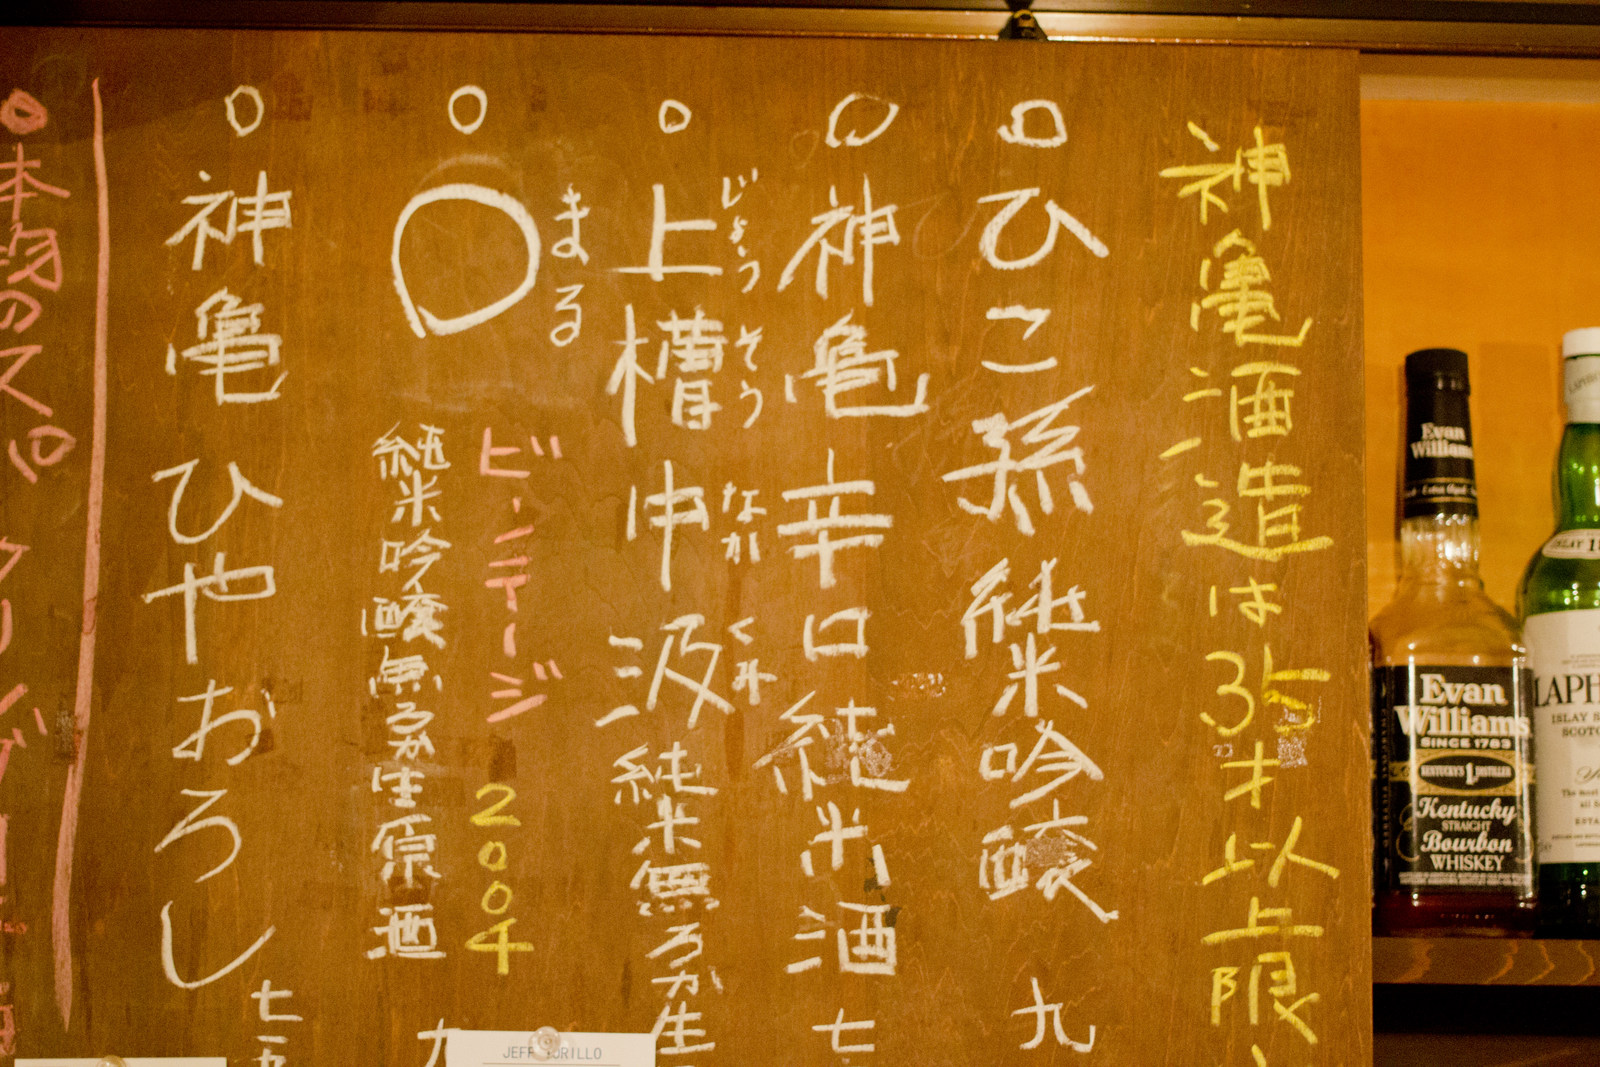 神亀酒造は35才以上限
ひこ孫 純米吟醸 九
神亀 辛口 純米酒 七
じょうそう なかくみ
上槽中汲 純米無ろか生
まる
○
ビンテージ 2004
純米吟醸無ろか生原酒 九
神亀 ひやおろし 七五
本物のスロ
JEFF
Evan Williams
Evan Williams
SINCE 1783
KENTUCKY'S 1ST DISTILLER
Kentucky
STRAIGHT
Bourbon
WHISKEY
LAPH
ISLAY S
SCOT